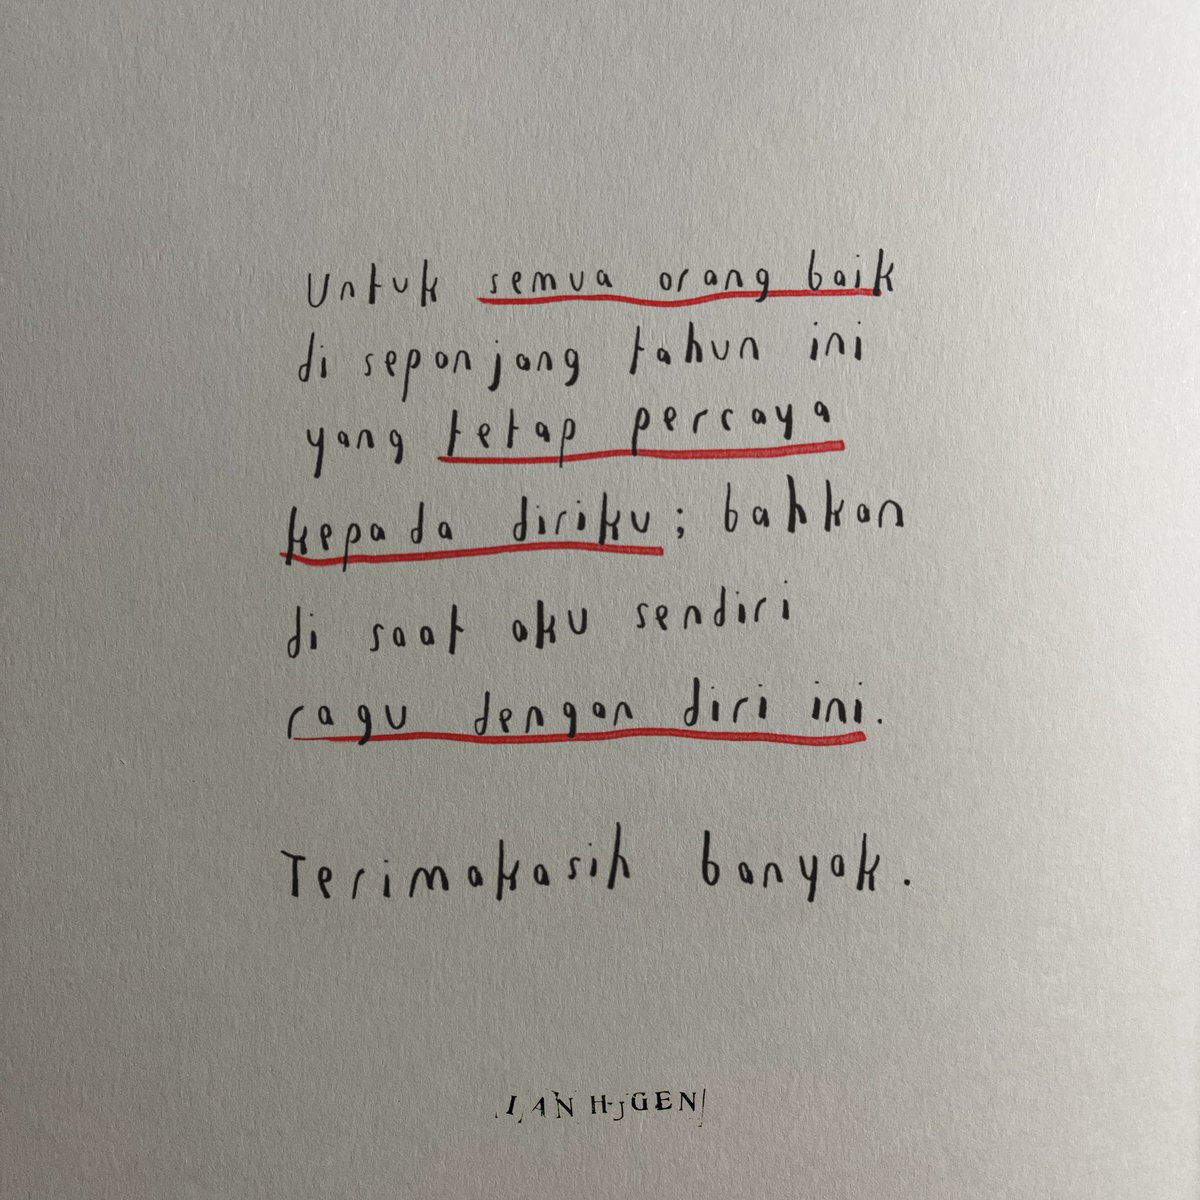 Untuk semua orang baik
di sepanjang tahun ini
yang tetap percaya
kepada diriku; bahkan
di saat aku sendiri
ragu dengan diri ini.
Terimakasih banyak.
IAN HUGEN